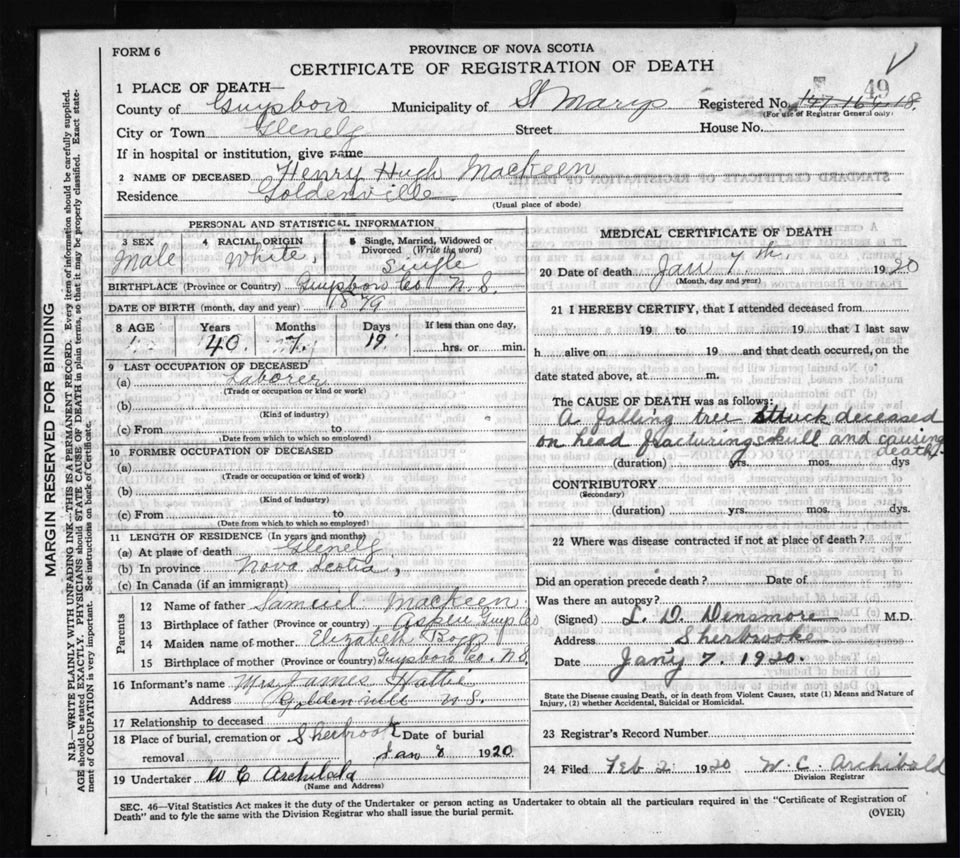 FORM 6
PROVINCE OF NOVA SCOTIA
CERTIFICATE OF REGISTRATION OF DEATH
49
1 PLACE OF DEATH—
County of Guysboro Municipality of St Marys Registered No.
(For use of Registrar General only)
City or Town Glenelg Street House No.
If in hospital or institution, give name
2 NAME OF DECEASED Henry Hugh MacKeen
Residence Goldenville
(Usual place of abode)
PERSONAL AND STATISTICAL INFORMATION
3 SEX 4 RACIAL ORIGIN 5 Single, Married, Widowed or Divorced (Write the word)
Male White, Single
BIRTHPLACE (Province or Country) Guysboro Co N.S.
DATE OF BIRTH (month, day and year) 1879
8 AGE Years Months Days If less than one day,
40. 7. 19. hrs. or min.
9 LAST OCCUPATION OF DECEASED
(a) Laborer
(Trade or occupation or kind or work)
(b)
(Kind of industry)
(c) From to
(Date from which to which so employed)
10 FORMER OCCUPATION OF DECEASED
(a)
(Trade or occupation or kind of work)
(b)
(Kind of industry)
(c) From to
(Date from which to which so employed)
11 LENGTH OF RESIDENCE (In years and months)
(a) At place of death Glenelg
(b) In province Nova Scotia,
(c) In Canada (if an immigrant)
Parents
12 Name of father Samuel MacKeen
13 Birthplace of father (Province or country) Aspen Guys Co
14 Maiden name of mother Elizabeth
15 Birthplace of mother (Province or country) Guysboro Co. N.S.
16 Informant's name Mrs James Hattie
Address Goldenville N.S.
17 Relationship to deceased
18 Place of burial, cremation or removal Sherbrook Date of burial
Jan 8 1920
19 Undertaker W C Archibald
(Name and Address)
MEDICAL CERTIFICATE OF DEATH
20 Date of death Jan 7th 1920
(Month, day and year)
21 I HEREBY CERTIFY, that I attended deceased from
19 to 19 that I last saw
h alive on 19 and that death occurred, on the
date stated above, at m.
The CAUSE OF DEATH was as follows:
A falling tree struck deceased
on head fracturing skull and causing
death.
(duration) yrs. mos. dys
CONTRIBUTORY
(Secondary)
(duration) yrs. mos. dys.
22 Where was disease contracted if not at place of death?
Did an operation precede death? Date of
Was there an autopsy?
(Signed) L. D. Densmore M.D.
Address Sherbrooke
Date Jany 7. 1920.
State the Disease causing Death, or in death from Violent Causes, state (1) Means and Nature of
Injury, (2) whether Accidental, Suicidal or Homicidal.
23 Registrar's Record Number
24 Filed Feb 2 1920 W. C. Archibald
Division Registrar
SEC. 46—Vital Statistics Act makes it the duty of the Undertaker or person acting as Undertaker to obtain all the particulars required in the "Certificate of Registration of
Death" and to fyle the same with the Division Registrar who shall issue the burial permit.
(OVER)
MARGIN RESERVED FOR BINDING
N.B.—WRITE PLAINLY WITH UNFADING INK—THIS IS A PERMANENT RECORD. Every item of information should be carefully supplied.
AGE should be stated EXACTLY. PHYSICIANS should STATE CAUSE OF DEATH in plain terms, so that it may be properly classified. Exact state-
ment of OCCUPATION is very important. See instructions on back of Certificate.